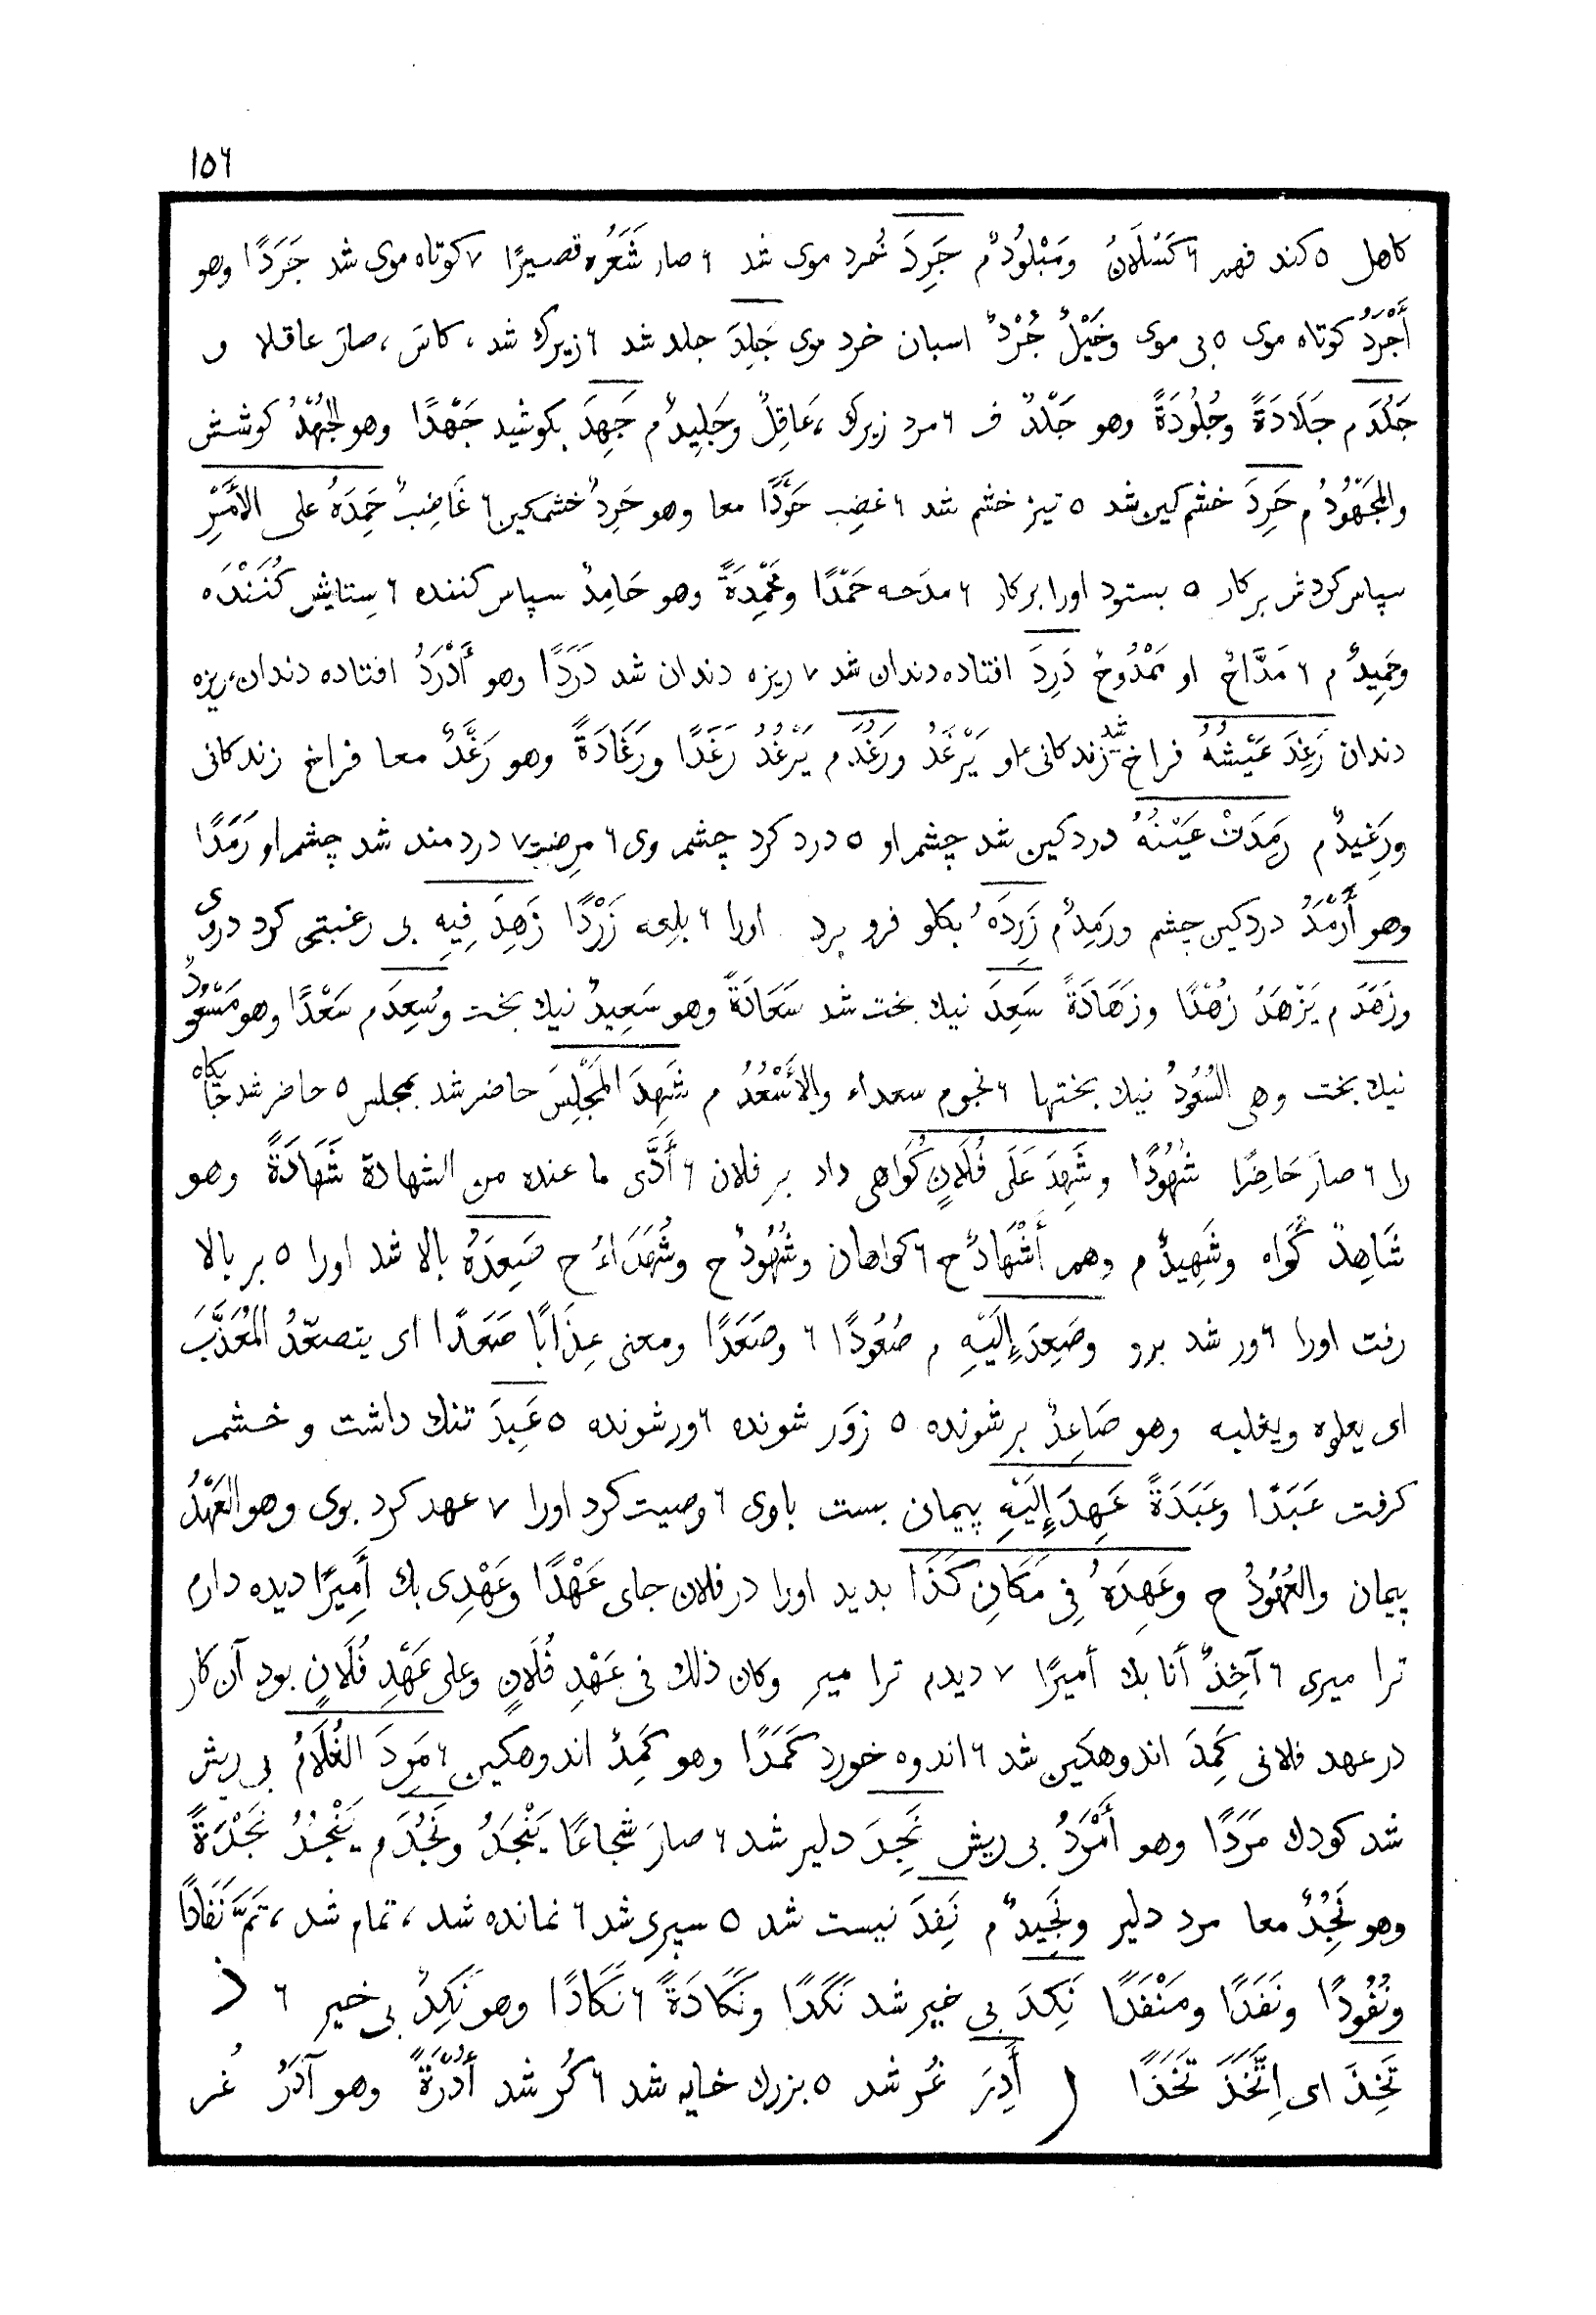 ١٥٦
كاهل ٥ كند فهم ٦ كَسْلَانُ ومَبْلُودٌ م جَرِدَ خُرد موى شد ٦ صار شَعَرُه قصيرًا ٧ كوتاه موى شد جَرَدًا وهو
أَجْرَدُ كوتاه موى ٥ بى موى وخَيْلٌ جُرْدٌ اسبان خرد موى جَلِدَ جلد شد ٦ زيرك شد ، كاسَ ، صارَ عاقلا و
جَلُدَ م جَلَادَةً وجُلُودَةً وهو جَلْدٌ ف ٦ مرد زيرك ، عَاقِلٌ وجَلِيدٌ م جَهِدَ بكوشيد جَهْدًا وهو الجُهْدُ كوشش
والمَجْهُودُ م حَرِدَ خشم كين شد ٥ تيز خشم شد ٦ غضِب حَرْدًا معا وهو حَرِدٌ خشمكين ٦ غَاضِبٌ حَمِدَهُ على الأَمْرِ
سپاس كردش بر كار ٥ بستود اورا بر كار ٦ مدَحه حَمْدًا ومَحْمِدَةً وهو حَامِدٌ سپاس كننده ٦ سِتايش كُنَنْدَه
وحَمِيدٌ م ٦ مَدَّاحٌ او مَمْدُوحٌ دَرِدَ افتاده دندان شد ٧ ريزه دندان شد دَرَدًا وهو أَدْرَدُ افتاده دندان ، ريزه
دندان رَغِدَ عَيْشُهُ فراخ شد زندكانى او يَرْغَدُ ورَغُدَ م يَرْغُدُ رَغَدًا ورَغَادَةً وهو رَغْدٌ معا فراخ زندكانى
ورَغِيدٌ م رَمِدَتْ عَيْنُهُ دردكين شد چشم او ٥ درد كرد چشم وى ٦ مرِضت ٧ دردمند شد چشم او رَمَدًا
وهو أَرْمَدُ دردكين چشم ورَمِدٌ م زَرِدَهُ بكلو فرو برد اورا ٦ بلِعه زَرْدًا زَهِدَ فِيهِ بى رغبتى كرد دروى
وزَهَدَ م يَزْهَدُ زُهْدًا وزَهَادَةً سَعِدَ نيك بخت شد سَعَادَةً وهو سَعِيدٌ نيك بخت وسُعِدَ م سَعْدًا وهو مَسْعُودٌ
نيك بخت وهى السُعُودُ نيك بختها ٦ نجوم سعداء والأَسْعُدُ م شَهِدَ المَجْلِسَ حاضر شد بمجلس ٥ حاضر شد جايكاه
را ٦ صارَ حَاضِرًا شُهُودًا وشَهِدَ عَلَى فُلَانٍ كُواهى داد بر فلان ٦ أَدَّى ما عنده من الشهادة شَهَادَةً وهو
شَاهِدٌ كُواه وشَهِيدٌ م وهم أَشْهَادٌ ح ٦ كواهان وشُهُودٌ ح وشُهَدَاءُ ح صَعِدَهُ بالا شد اورا ٥ بر بالا
رفت اورا ٦ ور شد برو وصَعِدَ إِلَيْهِ م صُعُودًا ٦ وصَعَدًا ومعنى عِذَابًا صَعَدًا اى يتصعّدُ المُعَذَّبَ
اى يعلوه ويغلبه وهو صَاعِدٌ بر شونده ٥ زوَر شونده ٦ ور شونده ٥ عَبِدَ تنك داشت و خشم
كرفت عَبَدًا وعَبَدَةً عَهِدَ إِلَيْهِ پيمان بست باوى ٦ وصيت كرد اورا ٧ عهد كرد بوى وهو العَهْدُ
پيمان والعُهُودُ ح وعَهِدَهُ فِى مَكَانِ كَذَا بديد اورا در فلان جاى عَهْدًا وعَهْدِى بك أَمِيرًا ديده دارم
ترا ميرى ٦ آخِذٌ أنا بك أميرًا ٧ ديدم ترا مير وكان ذلك فى عَهْدِ فُلَانٍ وعلى عَهْدِ فُلَانٍ بود آن كار
در عهد فلانى كَمِدَ اندوهكين شد ٦ اندوه خورد كَمَدًا وهو كَمِدٌ اندوهكين ٦ مَرِدَ الغُلَامُ بى ريش
شد كودك مَرَدًا وهو أَمْرَدُ بى ريش نَجِدَ دلير شد ٦ صارَ شجاعًا يَنْجَدُ ونَجُدَ م يَنْجُدُ نَجْدَةً
وهو نَجِدٌ معا مرد دلير ونَجِيدٌ م نَفِدَ نيست شد ٥ سپرى شد ٦ نمانده شد ، تمام شد ، تَمَّ نَفَادًا
ونُفُودًا ونَفَدًا ومَنْفَدًا نَكِدَ بى خير شد نَكَدًا ونَكَادَةً ٦ نَكَادًا وهو نَكِدٌ بى خير ٦ ذ
تَخِذَ اى اِتَّخَذَ تَخَذًا ر أَدِرَ غُر شد ٥ بزرك خايه شد ٦ كُر شد أُدْرَةً وهو آدَرُ غُر